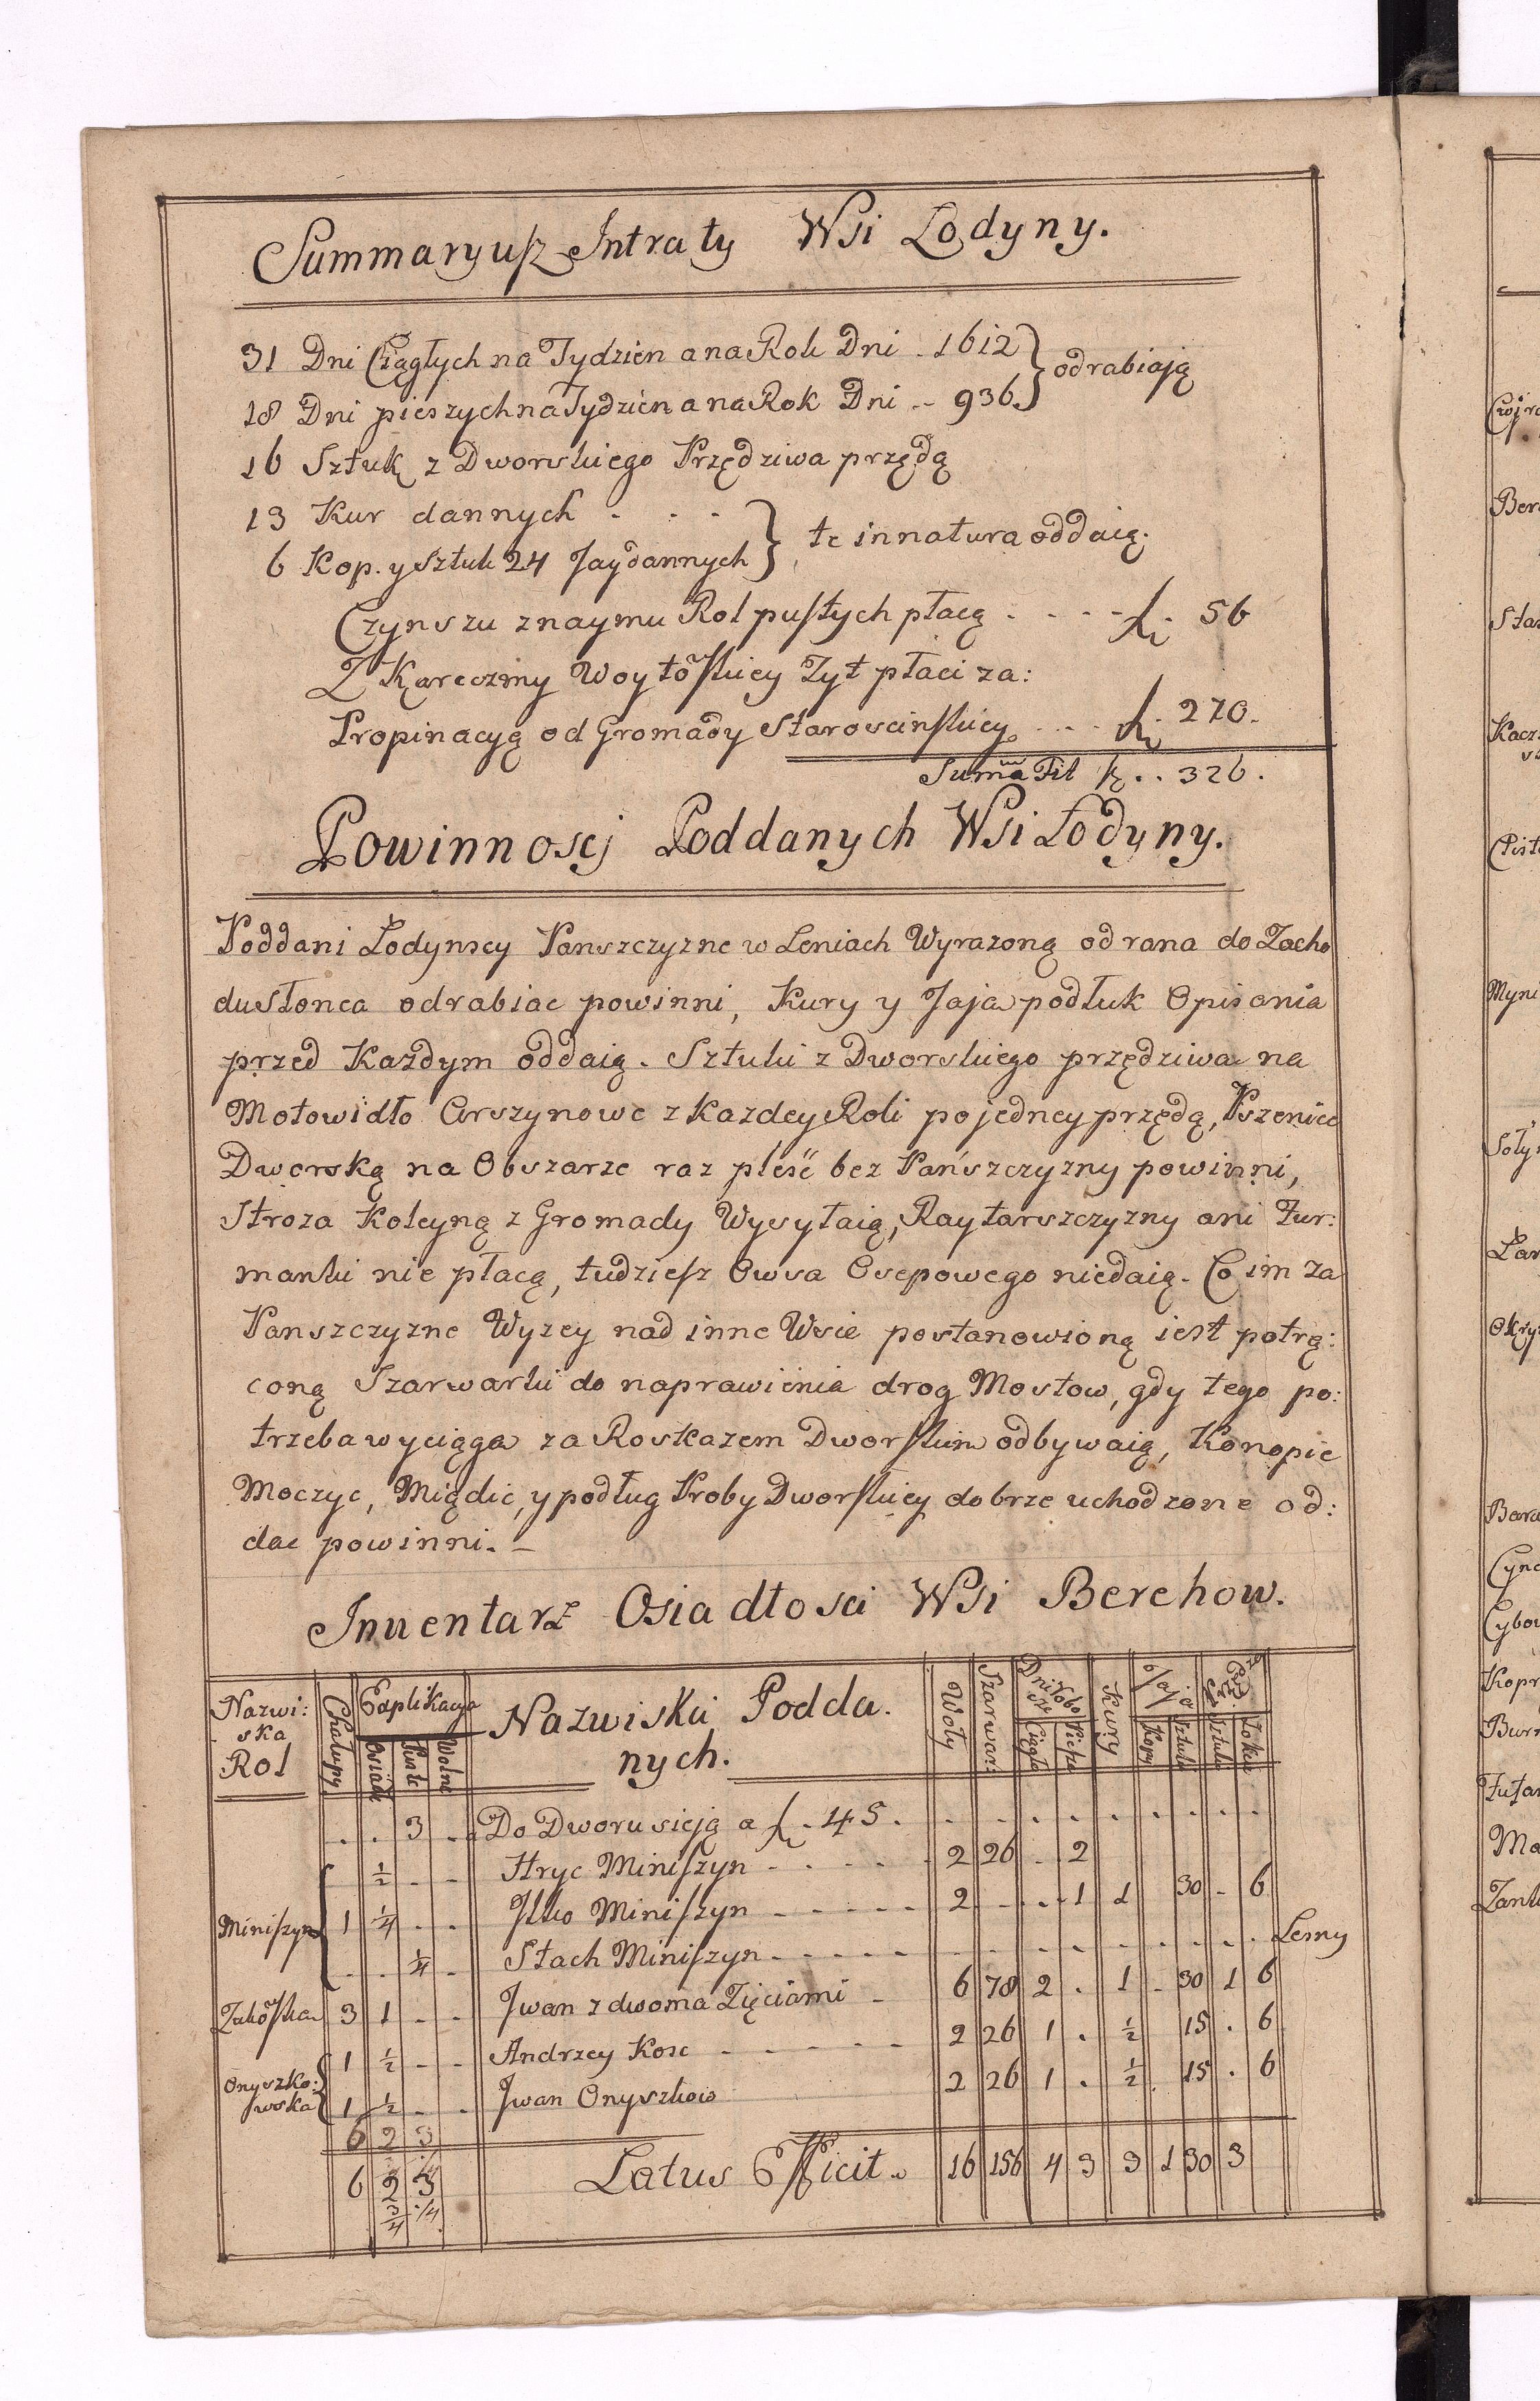 Summaryusz Intraty Wsi Lodyny.
31 Dni Ciągłych na Tydzien a na Rok Dni . 1612 } odrabiaią
18 Dni pieszych na Tydzien a na Rok Dni .. 936. }
16 Sztuk z Dworskiego Przędziwa przędą
13 Kur dannych . . . } te in natura oddaią.
6 Kop. y Sztuk 24 Jay dannych }
Czynszu z naymu Rol pustych płacą . . . . 56
Z Kareczmy Woytoskiey Zyt płaci za:
Propinacyą od Gromady Staroscinskiey . . . 270.
Summa Fit . . 326.
Powinnoscj Poddanych Wsi Łodyny.
Poddani Łodynscy Panszczyzne w Leniach Wyrazoną od rana do Zacho
du Słonca odrabiac powinni, Kury y Jaja podłuk Opisania
przed Kazdym oddaią. Sztuki z Dworskiego przędziwa na
Motowidło Arszynowe z Kazdey Roli po jedney przędą, Pszenice
Dworską na Obszarze raz pleść bez Pańszczyzny powinni,
Stroza Koleyną z Gromady Wysyłaią, Raytarszczyzny ani Fur:
manki nie płacą, tudziesz Owsa Osepowego niedaią. Co im za
Panszczyzne Wyzey nad inne Wsie postanowioną iest potrą:
coną Szarwarki do naprawienia drog Mostow, gdy tego po:
trzeba wyciąga za Roskazem Dworskim odbywaią, Konopie
Moczyc, Miądlic, y podług Proby Dworskiey dobrze uchodzone od:
dac powinni. –
Inwentarz Osiadłosci Wsi Berehow.
Nazwi: ska Rol | Chałupy | Explikacya | Osiadł | Puste | Wolne | Nazwiska Podda. nych. | Woły | Szarwar: | Dni Robo sze | Ciągłe | Piesze | Kury | Jaja | Kopy | Sztuki | Przę. | Sztuki | Łokci
. . 3 . Do Dworu sieją a . 45 . . . . . . . . . .
½ . . Hryc Miniszyn . . . . . 2 26 . 2
Miniszyn 1 ¼ . . Ilko Miniszyn . . . . . 2 . . . 1 1 30 . 6
. . ¼ . Stach Miniszyn . . . . . . . . . . . . Lesny
Zakoska 3 1 . . Jwan z dwoma Zięciami . 6 78 2 . 1 . 30 1 6
Onyszko: wska 1 ½ . . Andrzey Kosc . . . . . 2 26 1 . ½ 15 . 6
1 ½ . . Jwan Onyszkow 2 26 1 . ½ . 15 . 6
6 2 3
6 2 ¾ 3 ¼ Latus Efficit. 16 156 4 3 3 1 30 3